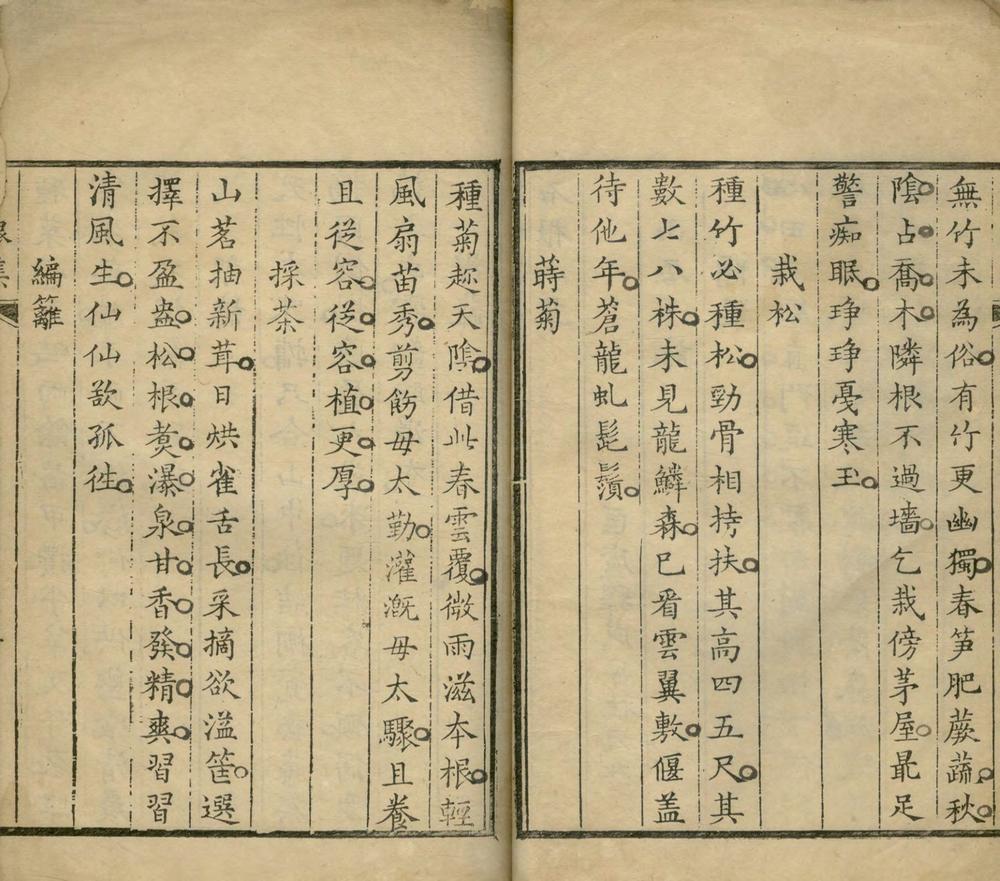 無竹未為俗有竹更幽獨春笋肥蕨蔬秋
陰占喬木隣根不過墻乞栽傍茅屋最足
警痴眠琤琤戛寒玉
栽松
種竹必種松勁骨相持扶其高四五尺其
數七八株未見龍鱗森已看雲翼敷偃盖
待他年蒼龍虬髭鬚
蒔菊
種菊趂天陰借此春雲覆微雨滋本根輕
風扇苗秀剪飭毋太勤灌漑毋太驟且養
且從容從容植更厚
採茶
山茗抽新茸日烘雀舌長采摘欲溢筐選
擇不盈盎松根煑瀑泉甘香發精爽習習
清風生仙仙欲孤徃
編籬